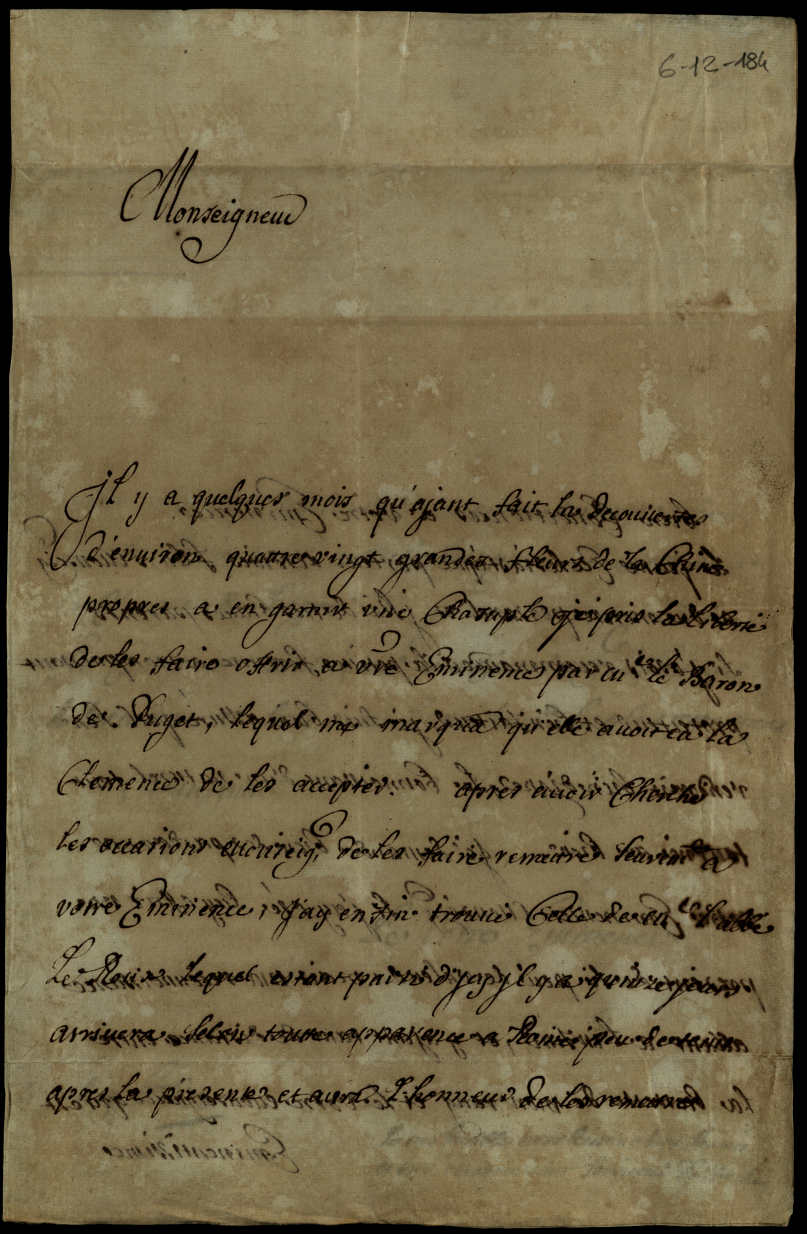 6-12-184
Monseigneur
Il y a quelques mois qu'ajant fait la decouverte
d'environ quattre vingt grandes fleurs de la Chine
propres a en garnir une Chasuple j'ai pris la liberté
de les faire offrir a vre Eminence par le Baron
de Puget, lequel me marqua qu'elle avoit eu la
Clemence de les accepter. apres avoir Cherché
les occasions de les faire remettre a
votre Eminence, j'ay enfin trouvé Celle de l'abbé
Le lequel estant parti d'jcy jl y a quinze jours
arrivera selon toutte apparence a Rome peu de tems
apres la presente et aura l'honneur de les remettre